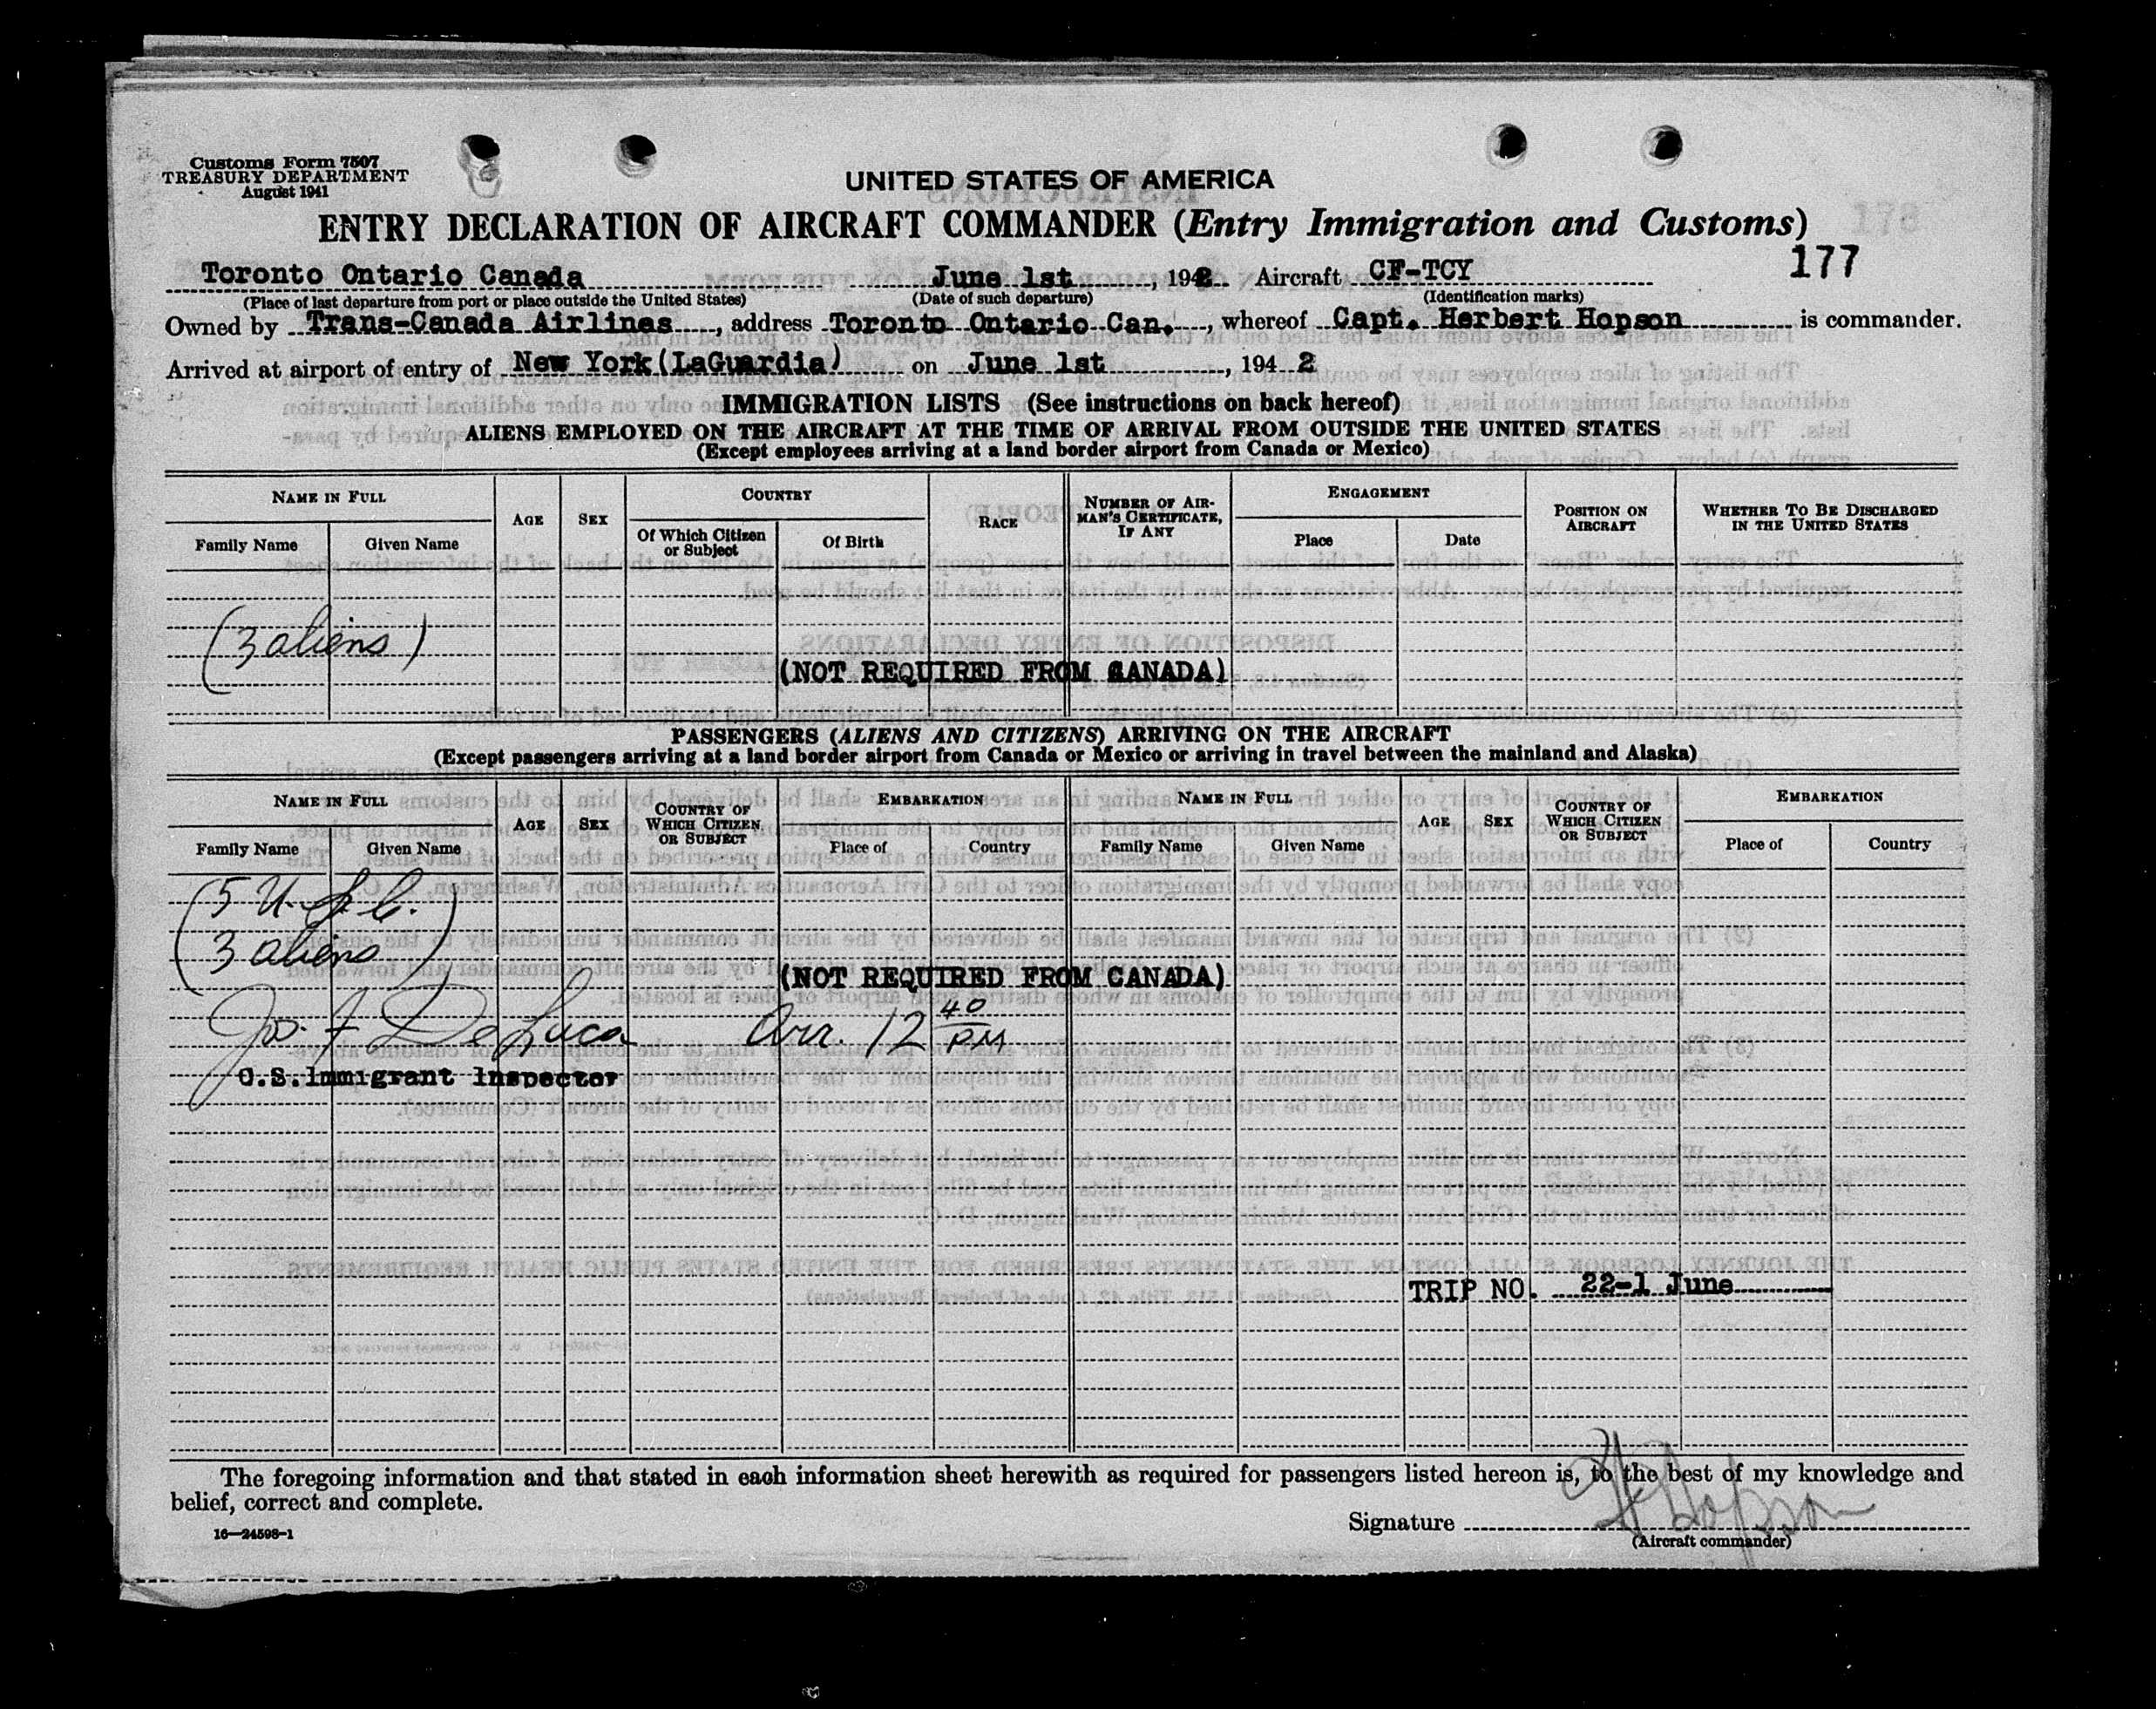 Customs Form 7507
TREASURY DEPARTMENT
August 1941
UNITED STATES OF AMERICA
ENTRY DECLARATION OF AIRCRAFT COMMANDER (Entry Immigration and Customs)
177
Toronto Ontario Canada June 1st, 1942 Aircraft CF-TCY
(Place of last departure from port or place outside the United States) (Date of such departure) (Identification marks)
Owned by Trans-Canada Airlines, address Toronto Ontario Can., whereof Capt. Herbert Hopson is commander.
Arrived at airport of entry of New York (LaGuardia) on June 1st, 1942
IMMIGRATION LISTS (See instructions on back hereof)
ALIENS EMPLOYED ON THE AIRCRAFT AT THE TIME OF ARRIVAL FROM OUTSIDE THE UNITED STATES
(Except employees arriving at a land border airport from Canada or Mexico)
NAME IN FULL AGE SEX COUNTRY RACE NUMBER OF AIRMAN'S CERTIFICATE, IF ANY ENGAGEMENT POSITION ON AIRCRAFT WHETHER TO BE DISCHARGED IN THE UNITED STATES
Family Name Given Name Of Which Citizen or Subject Of Birth Place Date
(3 aliens)
(NOT REQUIRED FROM CANADA)
PASSENGERS (ALIENS AND CITIZENS) ARRIVING ON THE AIRCRAFT
(Except passengers arriving at a land border airport from Canada or Mexico or arriving in travel between the mainland and Alaska)
NAME IN FULL AGE SEX COUNTRY OF WHICH CITIZEN OR SUBJECT EMBARKATION NAME IN FULL AGE SEX COUNTRY OF WHICH CITIZEN OR SUBJECT EMBARKATION
Family Name Given Name Place of Country Family Name Given Name Place of Country
(5 U.S.C.
3 aliens)
(NOT REQUIRED FROM CANADA)
Jos. F DeLuca Arr. 12 40 PM
U.S. Immigrant Inspector
TRIP NO. 22-1 June
The foregoing information and that stated in each information sheet herewith as required for passengers listed hereon is, to the best of my knowledge and
belief, correct and complete.
16—24598-1
Signature H Hopson
(Aircraft commander)